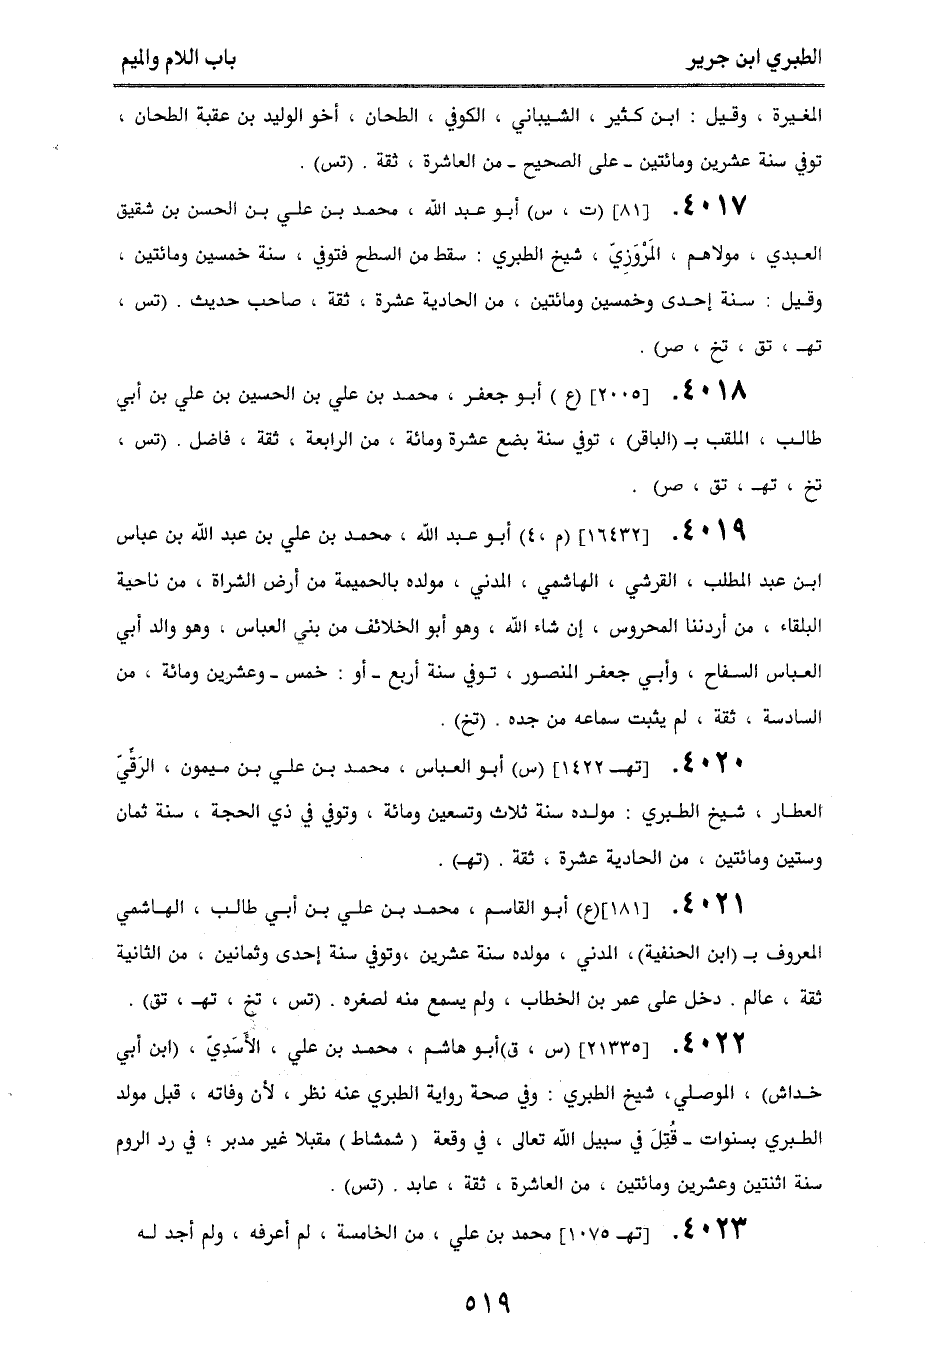 الطبري ابن جرير
باب اللام والميم
المغيرة ، وقيل : ابن كثير ، الشيباني ، الكوفي ، الطحان ، أخو الوليد بن عقبة الطحان ،
توفي سنة عشرين ومائتين ـ على الصحيح ـ من العاشرة ، ثقة . (تس) .
٤٠١٧. [٨١] (ت ، س) أبو عبد الله ، محمد بن علي بن الحسن بن شقيق
العبدي ، مولاهم ، المَرْوَزِيّ ، شيخ الطبري : سقط من السطح فتوفي ، سنة خمسين ومائتين ،
وقيل : سنة إحدى وخمسين ومائتين ، من الحادية عشرة ، ثقة ، صاحب حديث . (تس ،
تهـ ، تق ، تخ ، صر) .
٤٠١٨. [٢٠٠٥] (ع ) أبو جعفر ، محمد بن علي بن الحسين بن علي بن أبي
طالب ، الملقب بـ (الباقر) ، توفي سنة بضع عشرة ومائة ، من الرابعة ، ثقة ، فاضل . (تس ،
تخ ، تهـ ، تق ، صر) .
٤٠١٩. [١٦٤٣٢] (م ،٤) أبو عبد الله ، محمد بن علي بن عبد الله بن عباس
ابن عبد المطلب ، القرشي ، الهاشمي ، المدني ، مولده بالحميمة من أرض الشراة ، من ناحية
البلقاء ، من أردننا المحروس ، إن شاء الله ، وهو أبو الخلائف من بني العباس ، وهو والد أبي
العباس السفاح ، وأبي جعفر المنصور ، توفي سنة أربع ـ أو : خمس ـ وعشرين ومائة ، من
السادسة ، ثقة ، لم يثبت سماعه من جده . (تخ) .
٤٠٢٠. [تهـ ١٤٢٢] (س) أبو العباس ، محمد بن علي بن ميمون ، الرَقِّيّ
العطار ، شيخ الطبري : مولده سنة ثلاث وتسعين ومائة ، وتوفي في ذي الحجة ، سنة ثمان
وستين ومائتين ، من الحادية عشرة ، ثقة . (تهـ) .
٤٠٢١. [١٨١](ع) أبو القاسم ، محمد بن علي بن أبي طالب ، الهاشمي
المعروف بـ (ابن الحنفية)، المدني ، مولده سنة عشرين ،وتوفي سنة إحدى وثمانين ، من الثانية
ثقة ، عالم . دخل على عمر بن الخطاب ، ولم يسمع منه لصغره . (تس ، تخ ، تهـ ، تق) .
٤٠٢٢. [٢١٣٣٥] (س ، ق)أبو هاشم ، محمد بن علي ، الأَسَدِيّ ، (ابن أبي
خداش) ، الموصلي، شيخ الطبري : وفي صحة رواية الطبري عنه نظر ، لأن وفاته ، قبل مولد
الطبري بسنوات ـ قُتِلَ في سبيل الله تعالى ، في وقعة ( شمشاط ) مقبلا غير مدبر ؛ في رد الروم
سنة اثنتين وعشرين ومائتين ، من العاشرة ، ثقة ، عابد . (تس) .
٤٠٢٣. [تهـ ١٠٧٥] محمد بن علي ، من الخامسة ، لم أعرفه ، ولم أجد له
٥١٩